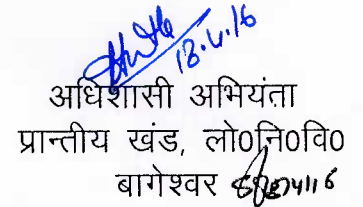 18.4.16
अधिशासी अभियंता
प्रान्तीय खंड, लो0नि0वि0
बागेश्वर